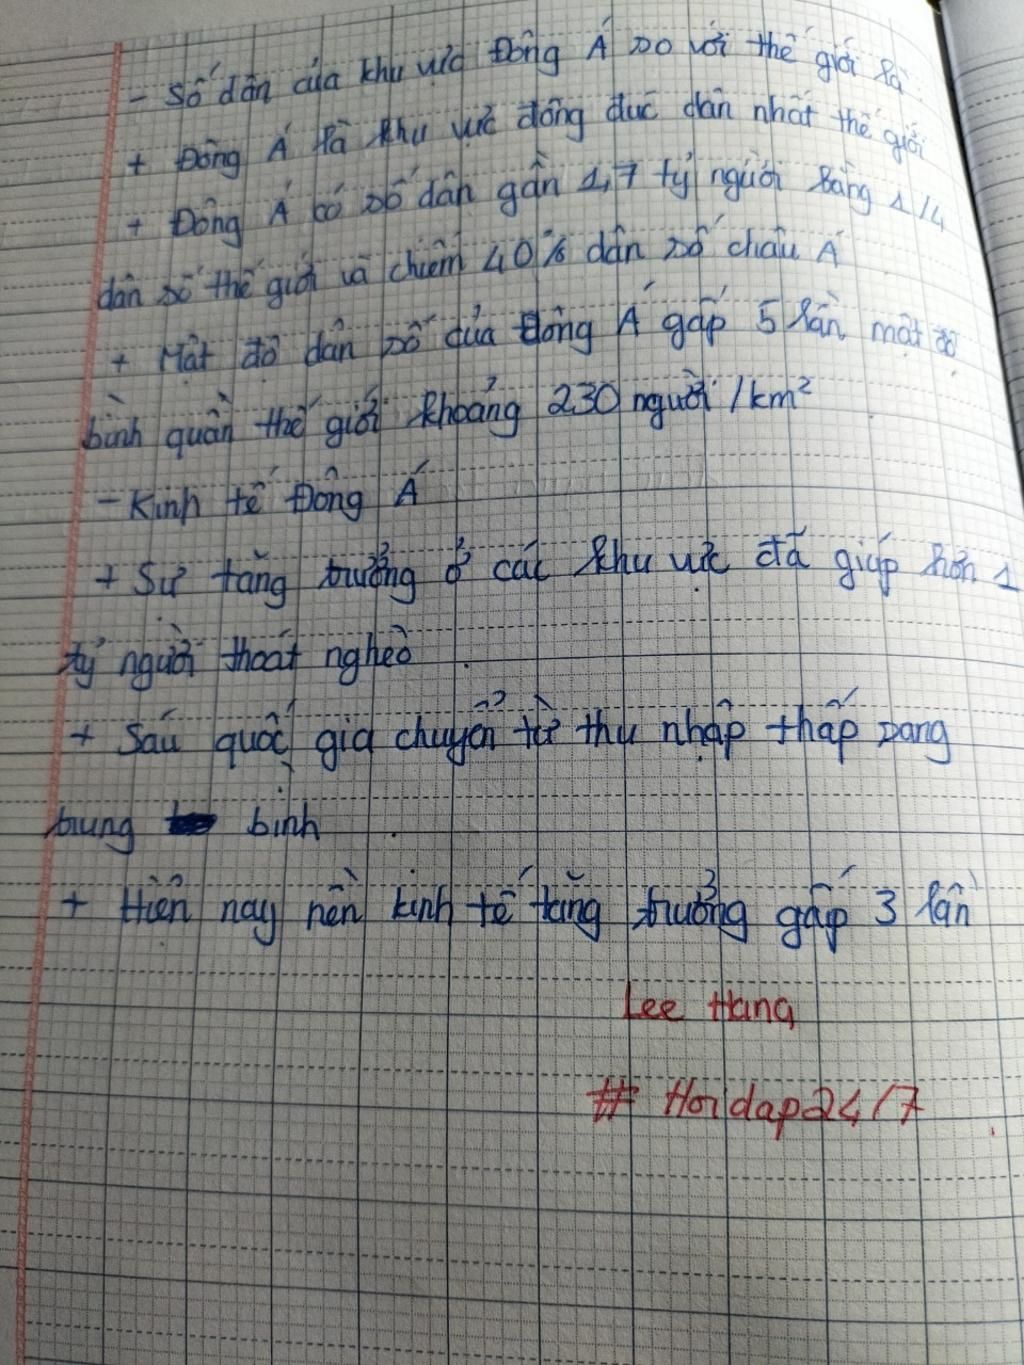 - Số dân của khu vực Đông Á so với thế giới là:
+ Đông Á là khu vực đông đúc dân nhất thế giới
+ Đông Á có số dân gần 1,7 tỷ người bằng 1/4
dân số thế giới và chiếm 40% dân số châu Á
+ Mật độ dân số của Đông Á gấp 5 lần mật độ
bình quân thế giới khoảng 230 người /km²
- Kinh tế Đông Á
+ Sự tăng trưởng ở các khu vực đã giúp hơn 1
tỷ người thoát nghèo
+ Sáu quốc gia chuyển từ thu nhập thấp sang
trung bình
+ Hiện nay nền kinh tế tăng trưởng gấp 3 lần
Lee Hang
# Hoidap24/7